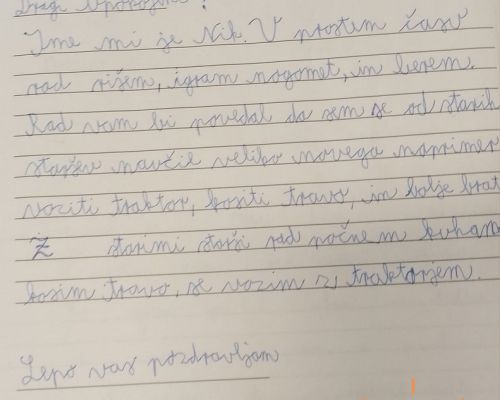 Dragi upokojenci!
Ime mi je Nik. V prostem času
rad rišem, igram nogomet, in berem.
Rad vam bi povedal da sem se od starih
staršev naučil veliko novega naprimer
voziti traktor, kositi travo, in bolje brat
Z starimi starši rad počnem kuham
kosim travo, se vozim z traktorjem.
Lepo vas pozdravljam